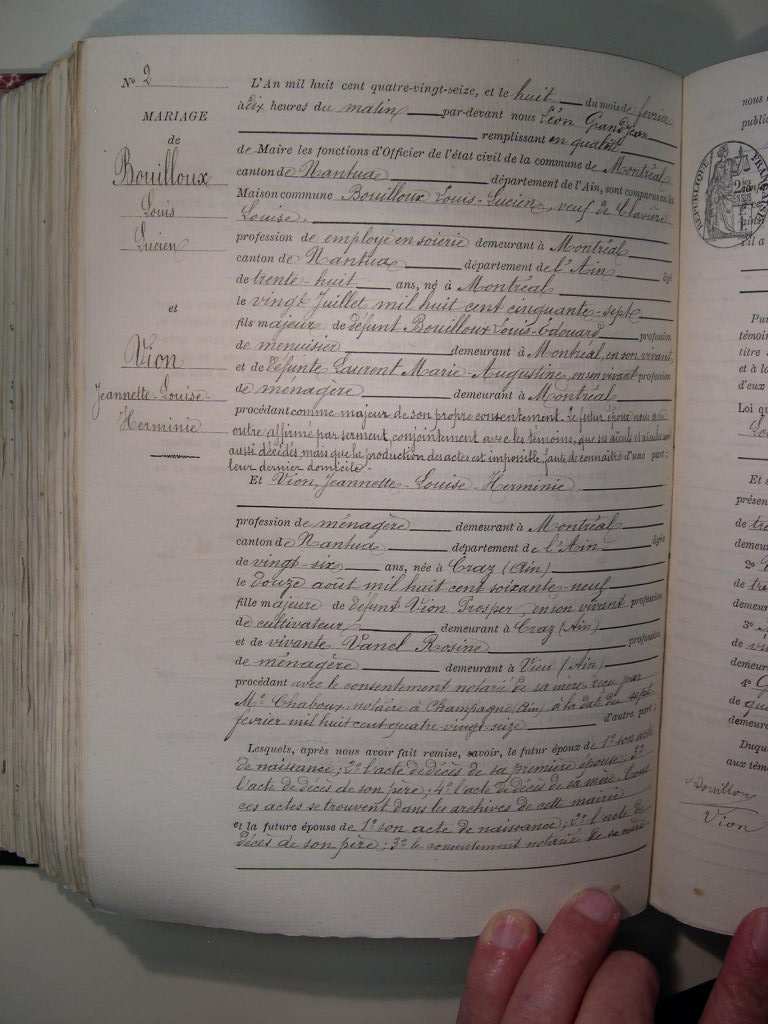 No 2
MARIAGE
de
Bouilloux
Louis
Lucien
et
Vion
Jeannette-Louise-
Herminie
L'An mil huit cent quatre-vingt-seize, et le huit du mois de février
à dix heures du matin par-devant nous Léon Grandjean
remplissant en qualité
de Maire les fonctions d'Officier de l'état civil de la commune de Montréal
canton de Nantua département de l'Ain, sont comparus en la
Maison commune Bouilloux Louis-Lucien, veuf de Clavière
Louise,
profession de employé en soierie demeurant à Montréal
canton de Nantua département de l'Ain âgé
de trente-huit ans, né à Montréal
le vingt Juillet mil huit cent cinquante-sept
fils majeur de défunt Bouilloux Louis-Edouard profession
de menuisier demeurant à Montréal, en son vivant,
et de défunte Laurent Marie-Augustine, en son vivant profession
de ménagère demeurant à Montréal
procédant comme majeur de son propre consentement. Le futur époux nous a en
outre affirmé par serment, conjointement avec les témoins, que ses aïeuls et aïeules sont
aussi décédés, mais que la production des actes est impossible, faute de connaître d'une part;
leur dernier domicile.
Et Vion Jeannette-Louise-Herminie
profession de ménagère demeurant à Montréal
canton de Nantua département de l'Ain âgée
de vingt-six ans, née à Craz (Ain)
le douze août mil huit cent soixante-neuf
fille majeure de défunt Vion Prosper, en son vivant profession
de cultivateur demeurant à Craz (Ain)
et de vivante Vanel Rosine profession
de ménagère demeurant à Vieu (Ain)
procédant avec le consentement notarié de sa mère, reçu par
Me Chaboux, notaire à Champagne (Ain) à la date du sept
février mil huit cent quatre-vingt-seize d'autre part;
Lesquels, après nous avoir fait remise, savoir, le futur époux de 1° son acte
de naissance; 2° l'acte de décès de sa première épouse; 3°
l'acte de décès de son père; 4° l'acte de décès de sa mère. Tous
ces actes se trouvent dans les archives de cette mairie
et la future épouse de 1° son acte de naissance; 2° l'acte de
décès de son père; 3° le consentement notarié de sa mère
RÉPUBLIQUE FRANÇAISE
nous
public
il a
Pu
témoin
titre
et à la
d'eux
Loi qu
Et
présen
de
demeu
2°
de
demeur
3°
de
demeur
4°
de
demeur
Duqu
aux tém
Bouilloux
Vion